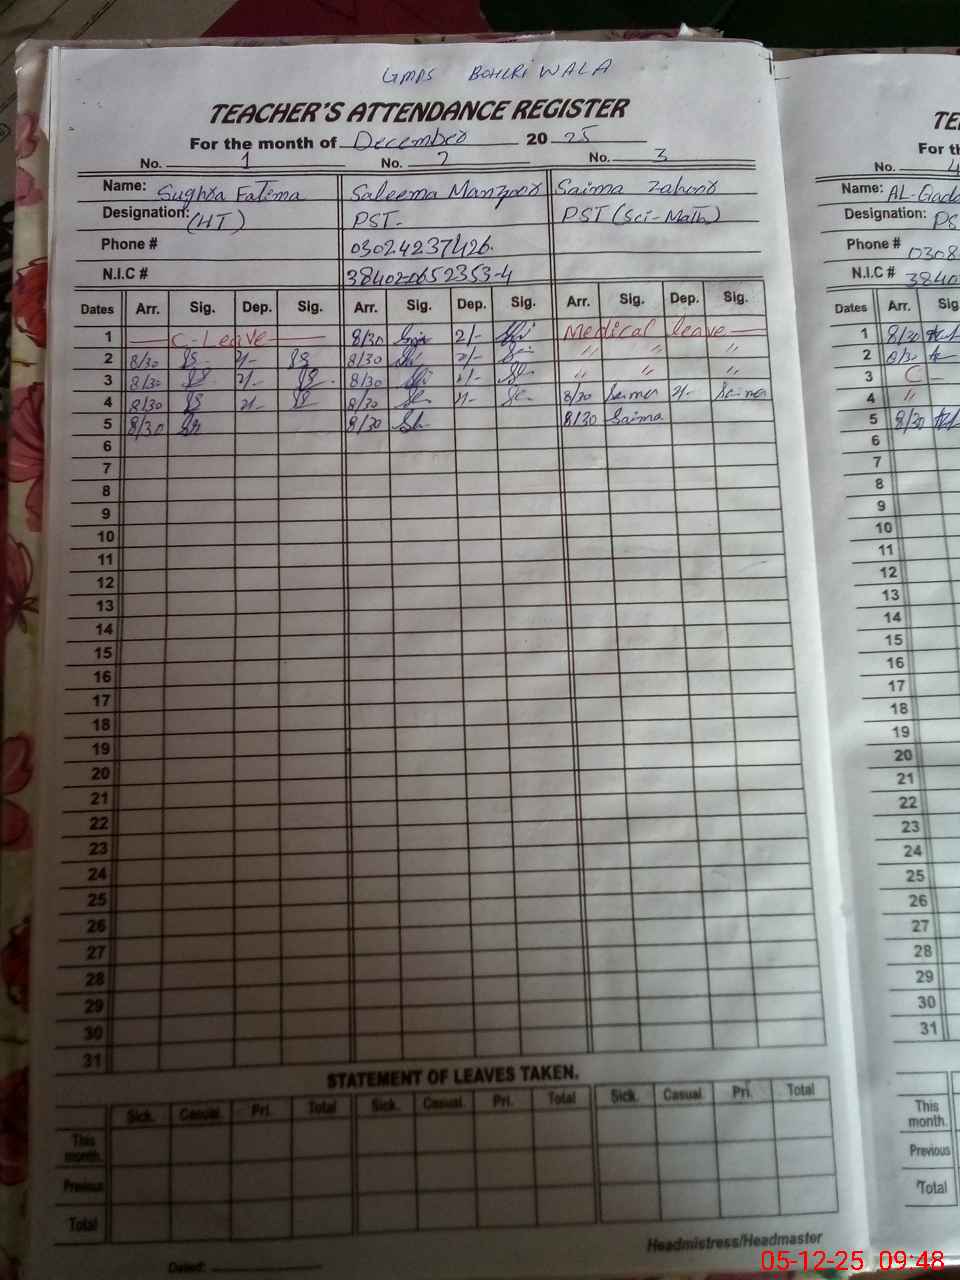 GMPS BOHLRI WALA
TEACHER'S ATTENDANCE REGISTER
For the month of December 2025
No. 1 No. 2 No. 3
Name: Sughra Fatima Saleema Manzoor Saima Zahoor
Designation: (HT) PST- PST (Sci-Math)
Phone # 03024237426
N.I.C # 38402-0652353-4
Dates Arr. Sig. Dep. Sig. Arr. Sig. Dep. Sig. Arr. Sig. Dep. Sig.
1 C-Leave 8/30 2/- Medical leave
2 8/30 2/- 8/30 2/- " " "
3 8/30 2/- 8/30 2/- " " "
4 8/30 2/- 8/30 2/- 8/30 Saima 2/- Saima
5 8/30 8/30 8/30 Saima
6
7
8
9
10
11
12
13
14
15
16
17
18
19
20
21
22
23
24
25
26
27
28
29
30
31
STATEMENT OF LEAVES TAKEN.
Sick. Casual Pri. Total Sick. Casual Pri. Total Sick. Casual Pri. Total
This month.
Previous
Total
Headmistress/Headmaster
Dated:
TE
For th
No. 4
Name: AL-
Designation: PS
Phone # 0308
N.I.C # 3840
Dates Arr. Sig
1 8/30
2 8/30
3 C -
4 "
5 8/30
6
7
8
9
10
11
12
13
14
15
16
17
18
19
20
21
22
23
24
25
26
27
28
29
30
31
This month.
Previous
Total
05-12-25 09:48